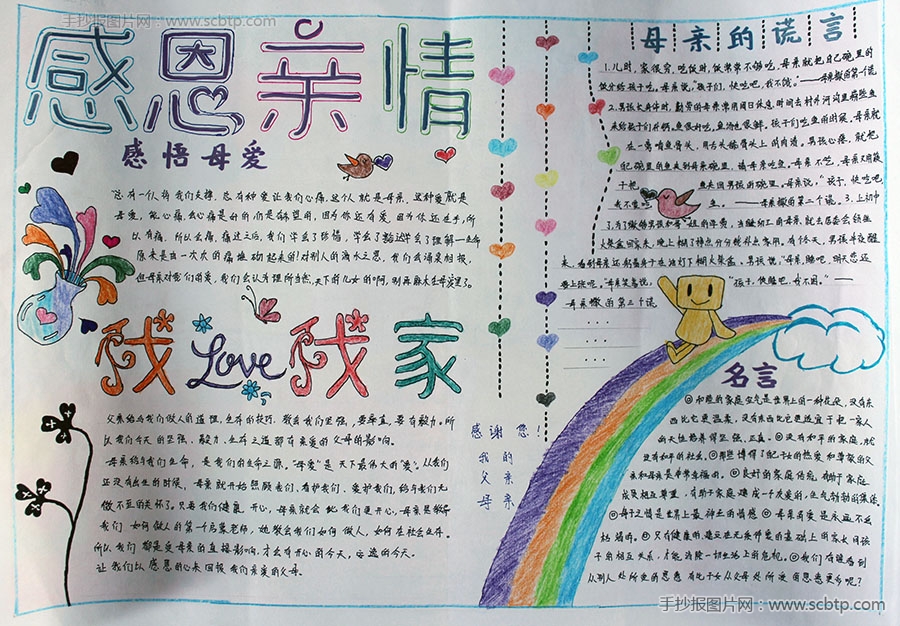 手抄报图片网：www.scbtp.com
感恩亲情
感悟母爱
总有一个人将我们支撑，总有种爱让我们心痛，这个人就是母亲，这种爱就是
母爱，
所以有痛，所以会痛，痛过之后，我们学会了珍惜，学会了
原来是由一次次的痛
但母亲对我们的爱，我们会认为理所当然，天下的儿女的啊，别再麻木在母爱里了。
我Love我家
父亲给与我们做人的道理，生存的技巧，教会我们坚强，要率直，要有毅力。所
以我们今天的坚强、毅力、生存之道都有亲爱的父母的影响。
母亲给与我们生命，是我们的生命之源。“母爱”是天下最伟大的“爱”。从我们
还没有出生的时候，母亲就开始照顾我们、看护我们、爱护我们，给与我们无
微不至的关怀了。只要我们健康、开心，母亲就会比我们更开心，母亲是教导
我们如何做人的第一个启蒙老师，她教会我们如何做人，如何在社会生存。
所以我们都是受母亲的直接影响，才会有开心的今天、安逸的今天。
让我们以感恩的心来回报我们亲爱的父母。
感谢您！
我的
父亲
母亲
母亲的谎言
1.儿时，家很穷，吃饭时，饭常常不够吃，母亲就把自己碗里的
饭分给孩子吃。母亲说，“孩子们，快吃吧，我不饿。”——母亲撒的第一谎
2.男孩长身体时，勤劳的母亲常用周日休息时间去村外河沟里捞些鱼
来给孩子们补钙。鱼很好吃，鱼汤也很鲜。孩子们吃鱼的时候，母亲就
在一旁啃鱼骨头，用舌头舔骨头上的肉渍。男孩心疼，就把
自己碗里的鱼夹到母亲碗里，请母亲吃鱼。母亲不吃，母亲又用筷
子把鱼夹回男孩的碗里。母亲说，“孩子，快吃吧，
我不爱吃鱼。——母亲撒的第二个谎。3.上初中
了，为了缴够男孩和哥姐的学费，当缝纫工的母亲就去居委会领些
火柴盒回家来，晚上糊了挣点分分钱补点家用。有个冬天，男孩半夜醒
来，看到母亲还躬着身子在油灯下糊火柴盒。男孩说，“母亲，睡吧，明天您还
要上班呢。”母亲笑笑说，“孩子，快睡吧，我不困。”——
母亲撒的第三个谎
……
……
……
名言
①和睦的家庭空气是世界上的一种花朵，没有东
西比它更温柔，没有东西比它更适宜于把一家人
的天性培养得坚强、正直。②没有和平的家庭，就
没有和平的社会。③那些博得了自己子女的热爱和尊敬的父
亲和母亲是非常幸福的。④良好的家庭传统，有助于家庭
成员相互尊重，有助于家庭建成一个友爱的、生气勃勃的集体
⑤母子之情是世界上最神圣的情感⑥母亲的爱是永远不会
枯竭的。⑦只有健康的、建立在无条件爱的基础上的家长同孩
子的相互关系，才能消除一切生活上的危机。⑧我们有谁看到
从别人处所受的恩惠有比子女从父母处所受的恩惠更多呢？
手抄报图片网：www.scbtp.com